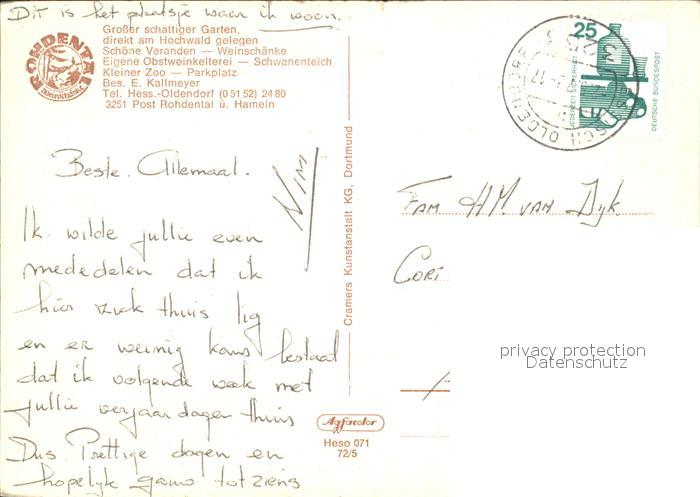 Dit is het plaatsje waar ik woon.
ROHDENTAL
Großer schattiger Garten,
direkt am Hochwald gelegen
Schöne Veranden — Weinschänke
Eigene Obstweinkelterei — Schwanenteich
Kleiner Zoo — Parkplatz
Bes. E. Kallmeyer
Tel. Hess.-Oldendorf (0 51 52) 24 80
3251 Post Rohdental ü. Hameln
Beste. Allemaal.
Ik wilde jullie even
mededelen dat ik
hier ziek thuis lig
en er weinig kans bestaat
dat ik volgende week met
jullie verjaardagen thuis
Dus Prettige dagen en
hopelijk gauw tot ziens
Wim
Cramers Kunstanstalt KG, Dortmund
Agfacolor
Heso 071
72/5
25
JEDERZEIT SICHERHEIT
DEUTSCHE BUNDESPOST
OLDENDORF
Fam H.M. van Dijk.
privacy protection
Datenschutz